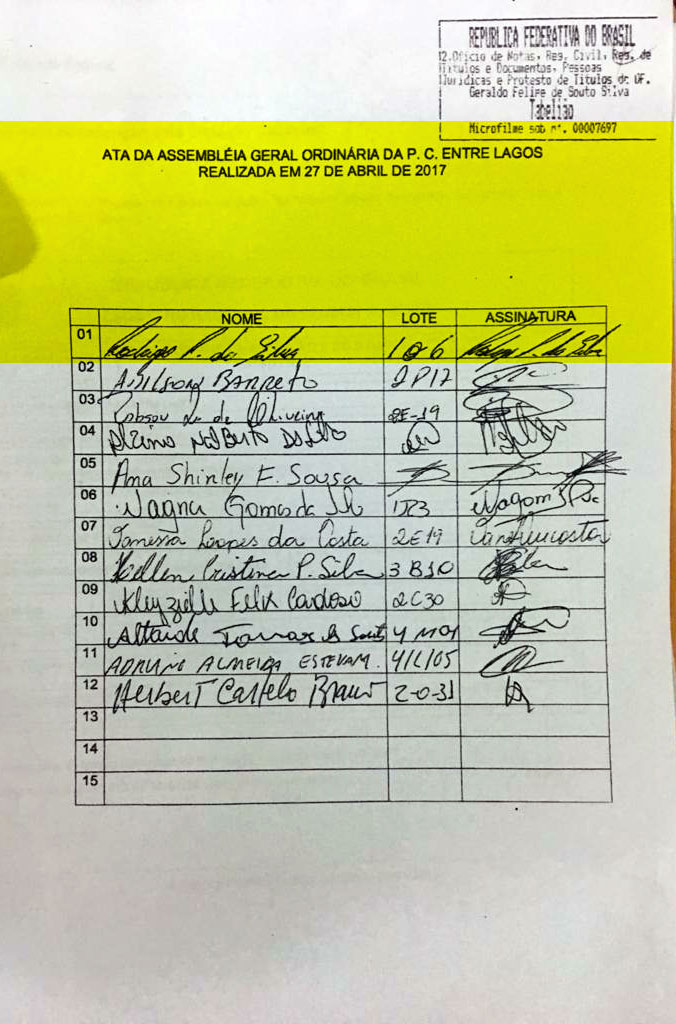 REPUBLICA FEDERATIVA DO BRASIL
2.Oficio de Notas, Reg. Civil, Reg. de
Titulos e Documentos, Pessoas
Juridicas e Protesto de Titulos do DF.
Geraldo Felipe de Souto Silva
Tabelião
Microfilme sob nº. 00007697
ATA DA ASSEMBLÉIA GERAL ORDINÁRIA DA P. C. ENTRE LAGOS
REALIZADA EM 27 DE ABRIL DE 2017
NOME LOTE ASSINATURA
01 Rodrigo P. da Silva 1Q6 Rodrigo P. da Silva
02 Barreto 2P17
03 Robson de Oliveira 2E-19
04 Norberto
05 Ana Shirley F. Sousa
06 Wagner Gomes da
07 Vanessa Lopes da Costa 2E19
08 Kellen Cristina P. Silva 3B10
09 Kleyzielle Felix Cardoso 2C30
10 Altaide
11 ADRIANO ALMEIDA ESTEVAM. 4/L/05
12 Herbert Castelo Branco 2-0-31
13
14
15